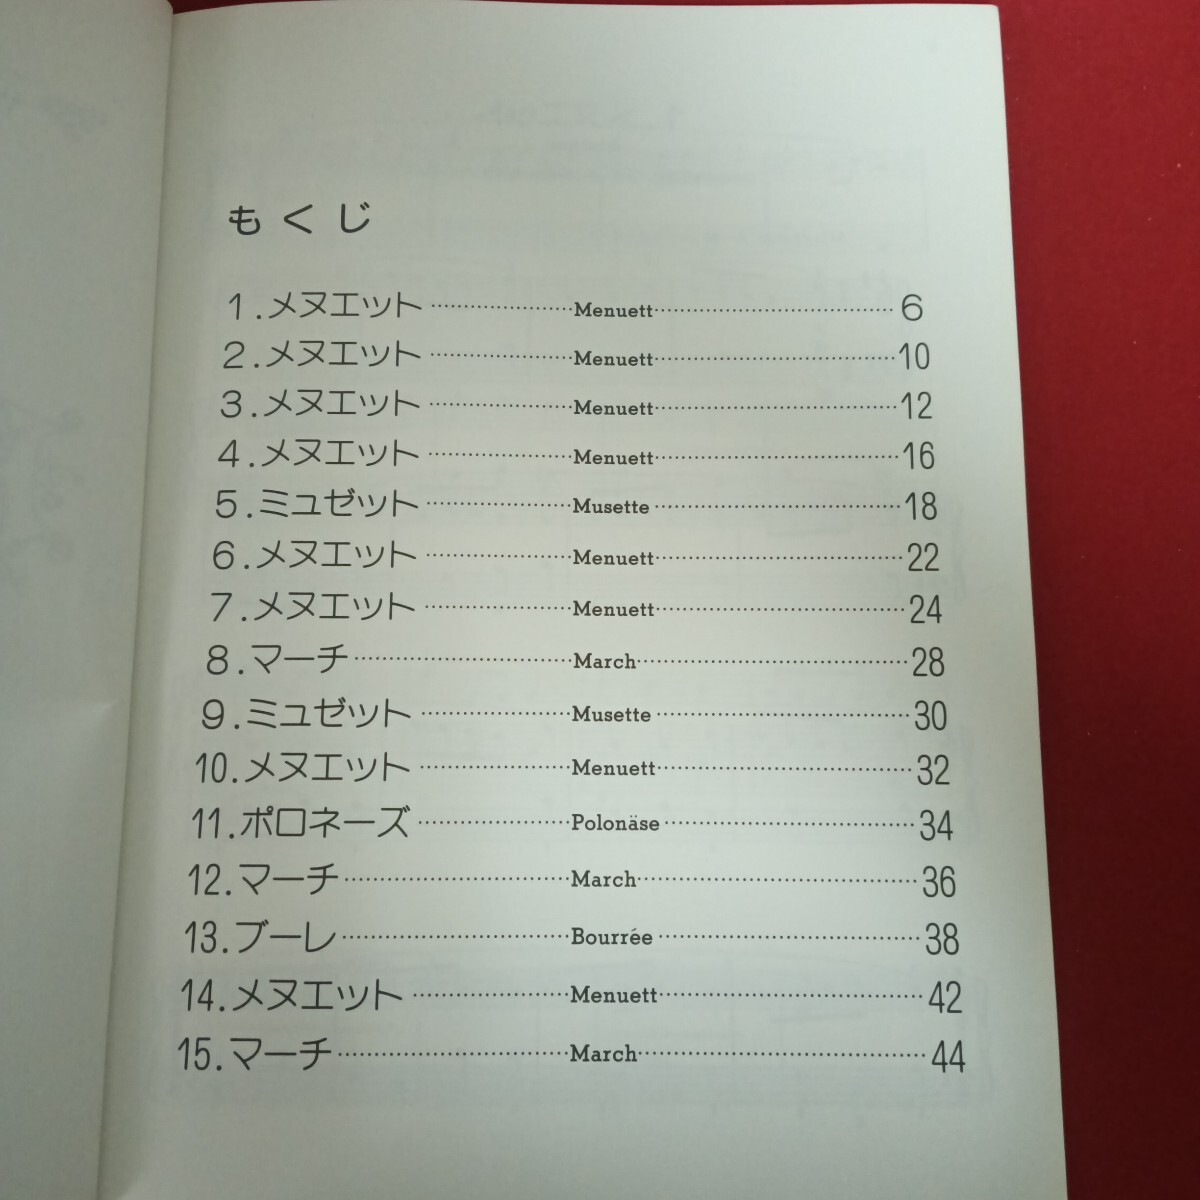 もくじ
1.メヌエット……………………Menuett……………………6
2.メヌエット……………………Menuett……………………10
3.メヌエット……………………Menuett……………………12
4.メヌエット……………………Menuett……………………16
5.ミュゼット……………………Musette……………………18
6.メヌエット……………………Menuett……………………22
7.メヌエット……………………Menuett……………………24
8.マーチ……………………March……………………28
9.ミュゼット……………………Musette……………………30
10.メヌエット……………………Menuett……………………32
11.ポロネーズ……………………Polonäse……………………34
12.マーチ……………………March……………………36
13.ブーレ……………………Bourrée……………………38
14.メヌエット……………………Menuett……………………42
15.マーチ……………………March……………………44